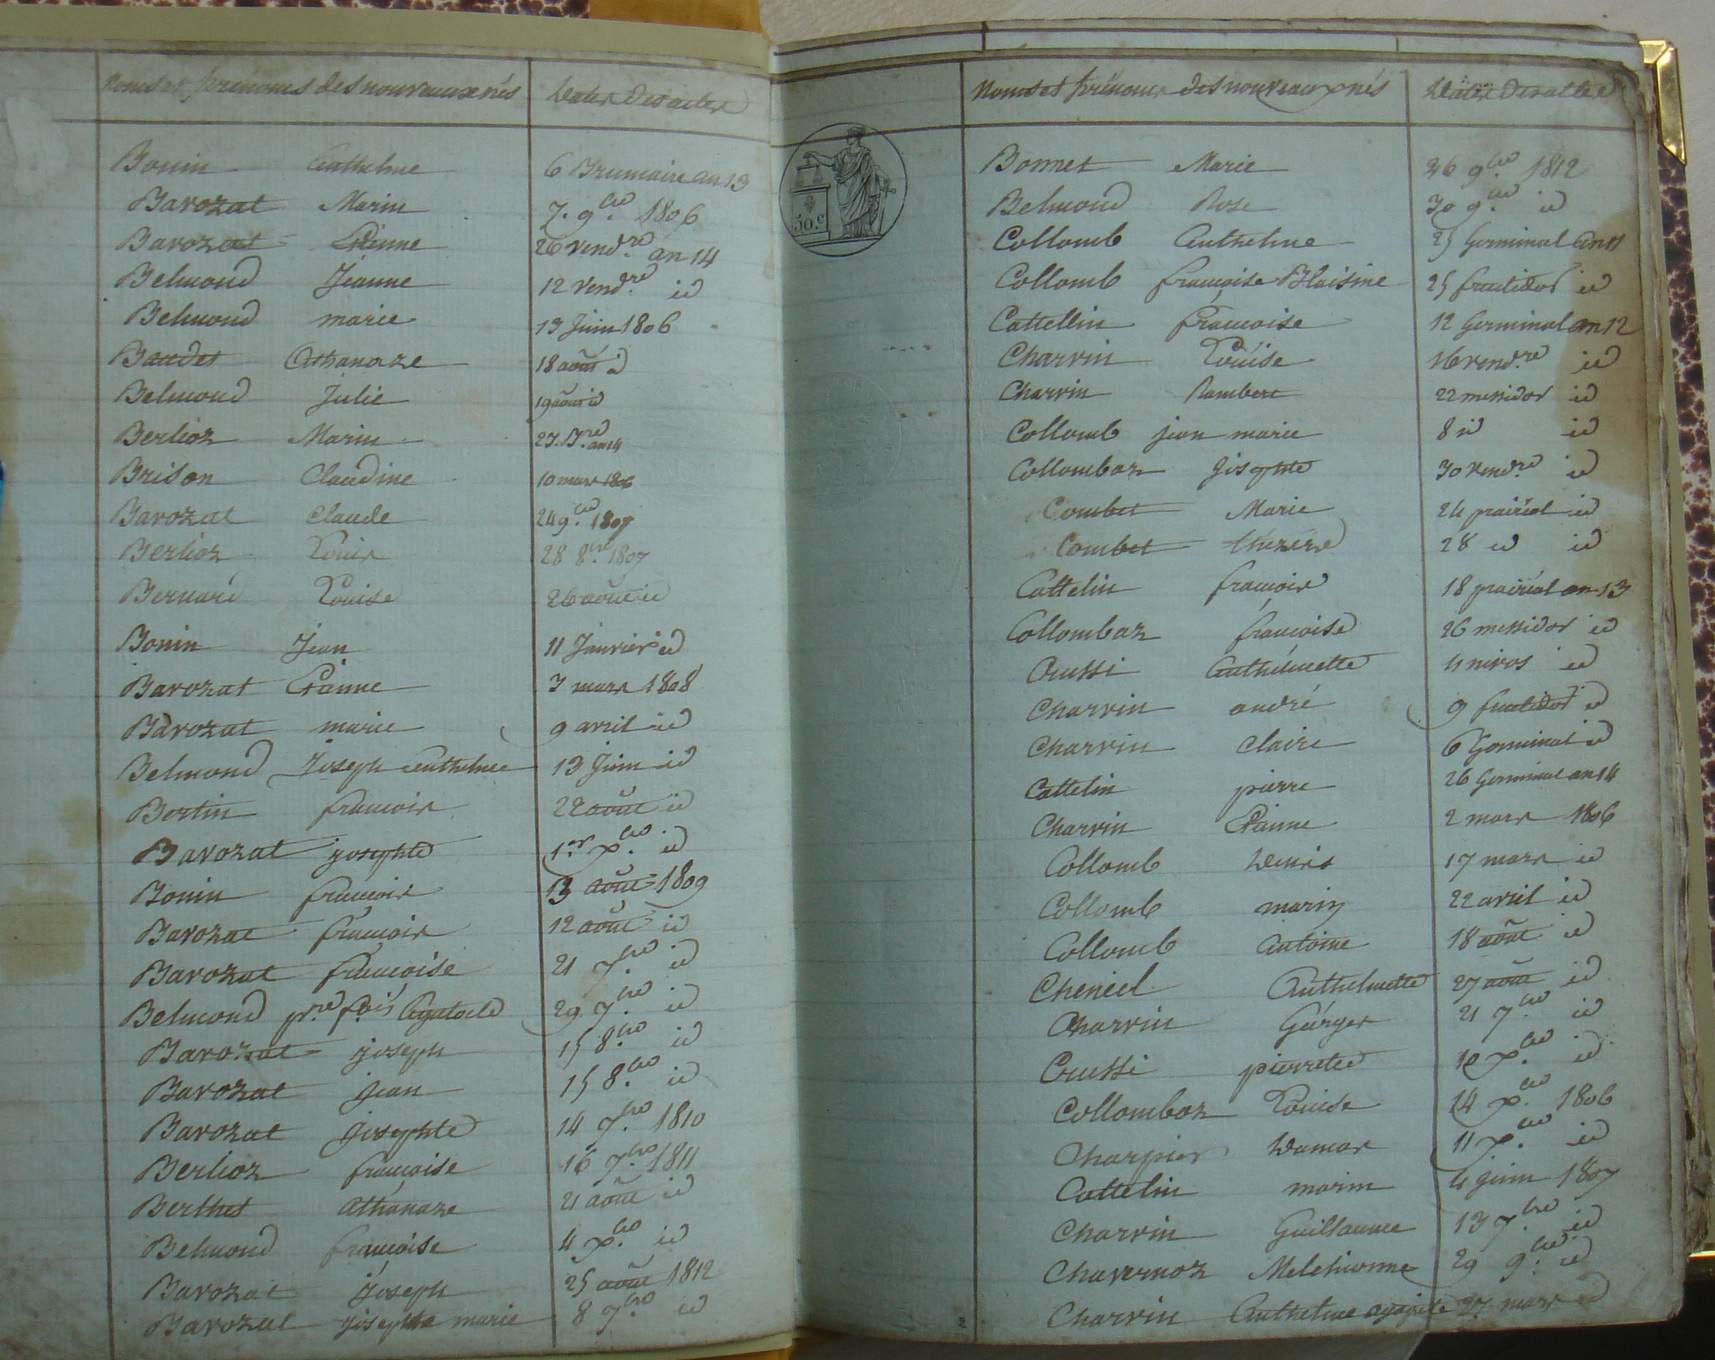 Noms et prénoms des nouveaux nés Dates des actes
Bonin Anthelme 6 Brumaire an 13
Barozat Marin 7. 9.bre 1806
Barozat Etienne 26 vend.re an 14
Belmond Jeanne 12 vend.re id
Belmond marie 13 Juin 1806
Baudet Athanaze 18 août id
Belmond Julie 19 août id
Berlioz Marin an 14
Brison Claudine 10 mars 1806
Barozat Claude 24 9.bre 1807
Berlioz Louis 28 8.bre 1807
Bernard Louise 26 août id
Bonin Jean 11 Janvier id
Barozat Etienne 3 mars 1808
Barozat marie 9 avril id
Belmond Joseph Anthelme 13 Juin id
Bertin francois 22 août id
Barozat josephte 1.er x.bre id
Bonin francois 13 août 1809
Barozat francois 12 août id
Barozat francoise 21 7.bre id
Belmond p.re f.ois 29 7.bre id
Barozat joseph 15 8.bre id
Barozat jean 15 8.bre id
Barozat josephte 14 7.bre 1810
Berlioz francoise 16 7.bre 1811
Berthet athanaze 21 août id
Belmond francoise 4 x.bre id
Barozat joseph 25 août 1812
Barozat josephte marie 8 7.bre id
50.c
Noms et prénoms des nouveaux nés Dates des actes
Bonnet Marie 26 9.bre 1812
Belmond Rose 30 9.bre id
Collomb Anthelme 25 Germinal an 11
Collomb francoise Blaisine 25 fructidor id
Cattellin francoise 12 Germinal an 12
Charvin Louise 16 vend.re id
Charvin Rambert 22 messidor id
Collomb jean marie 8 id id
Collombaz Josephte 30 vend.re id
Combet Marie 24 prairial id
Combet 28 id id
Cattelin francois 18 prairial an 13
Collombaz francoise 26 messidor id
Crussi Anthelmette 4 nivos id
Charvin andré 9 fructidor id
Charvin Claire 6 Germinal id
Cattelin pierre 26 Germinal an 14
Charvin Etienne 2 mars 1806
Collomb Denis 17 mars id
Collomb marin 22 avril id
Collomb Antoine 18 août id
Cheneel Anthelmette 27 août id
Charvin Georges 21 7.bre id
Crussi pierrette 10 x.bre id
Collomboz Louise 14 x.bre 1806
Charpier Damas 11 x.bre id
Cattelin marin 4 juin 1807
Charvin Guillaume 13 7.bre id
Chavernoz Melchionne 29 9.bre id
Charvin Anthelme 27 mars id